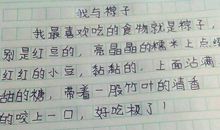 我与粽子
我最喜欢吃的食物就是粽子
别是红豆的，亮晶晶的糯米上点缀
红红的小豆，黏黏的，上面沾满
甜的糖，带着一股竹叶的清香
的咬上一口，好吃极了！